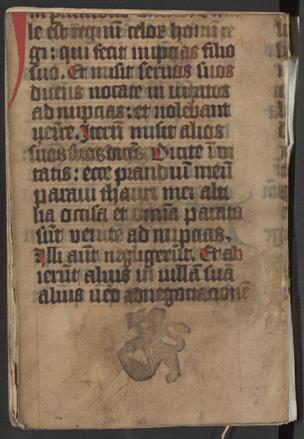 le est regnum celor homi re
gi: qui fecit nupcias filio
suo. Et misit seruos suos
dicens uocate inuitatos
ad nupcias: et nolebant
uenire. Iterū misit alios
seruos suos dicēs. Dicite īui
tatis: ecce prandiū meū
paraui thauri mei alti
lia occisa et omīa parata
sūt venite ad nupcias.
Illi aūt neglixerūt. Et ab
ierūt alius in uillā suā
alius ueo ad negociacionē